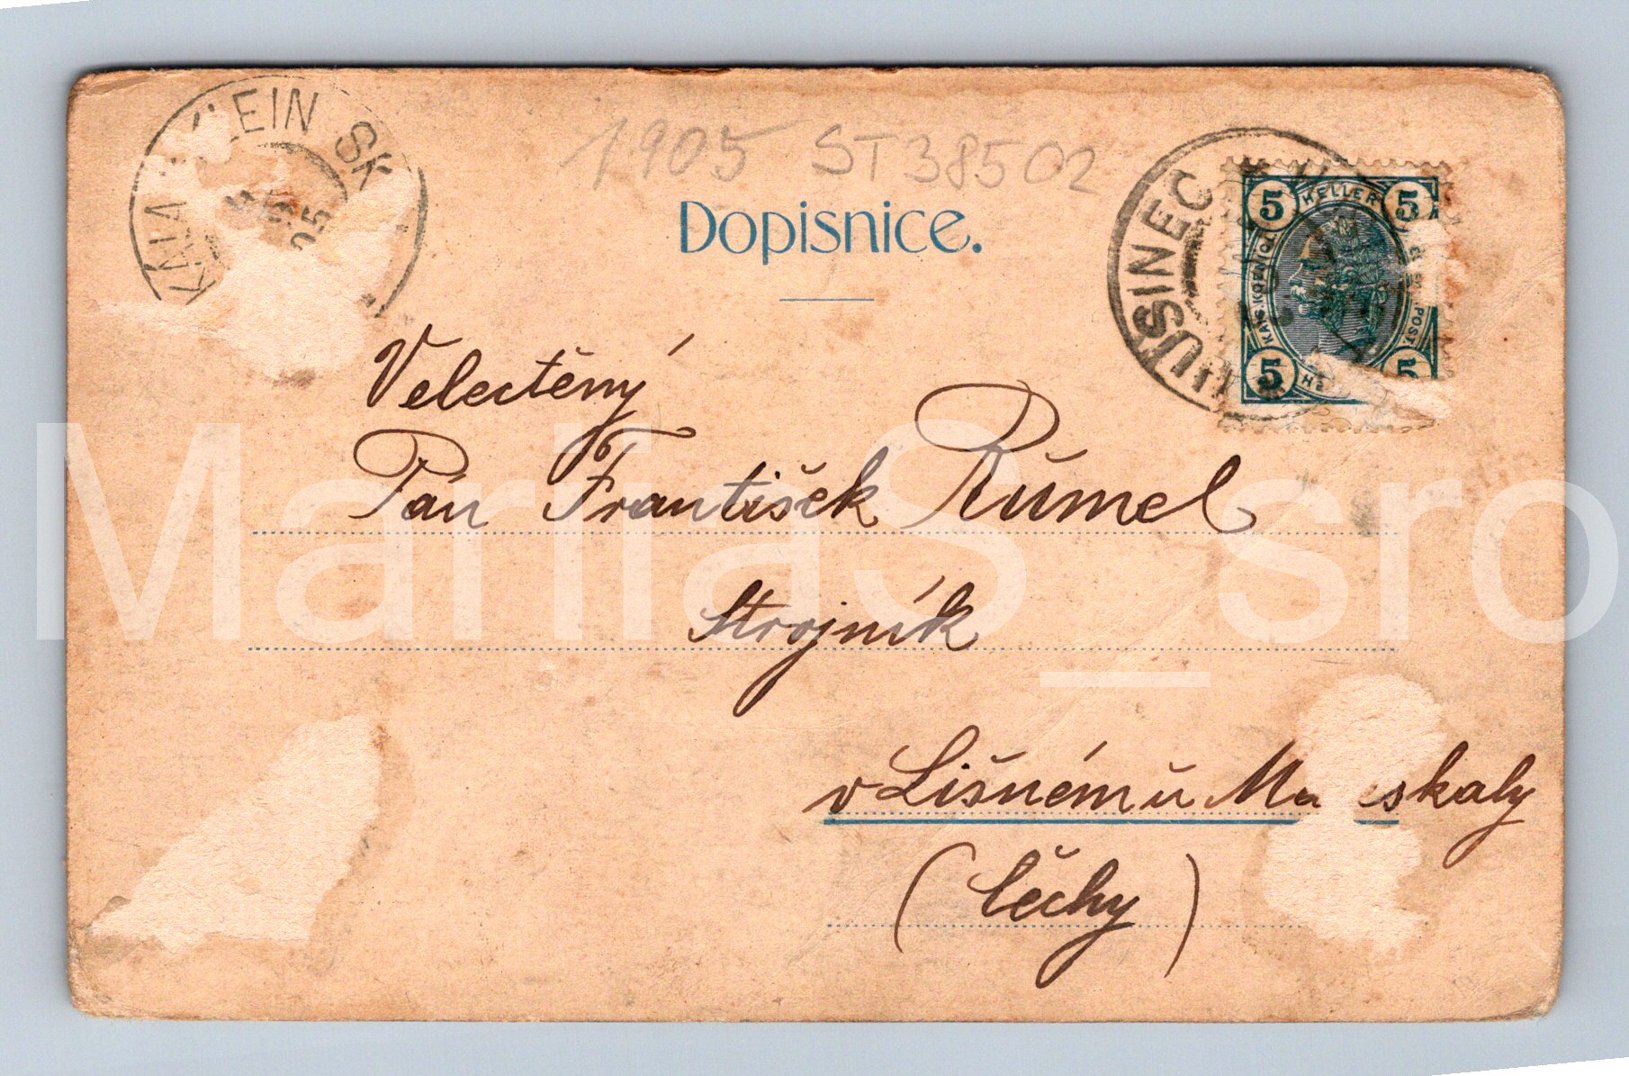 KLEIN SK
KÁLA
05
1905 ST38502
Dopisnice.
HUSINEC
5 KELLER 5
KAIS. KÖNIGL.
POST
5 5
Velectěný
Pán František Růmel
Strojník
v Lišnému
(Čechy)
MarliaS_sro